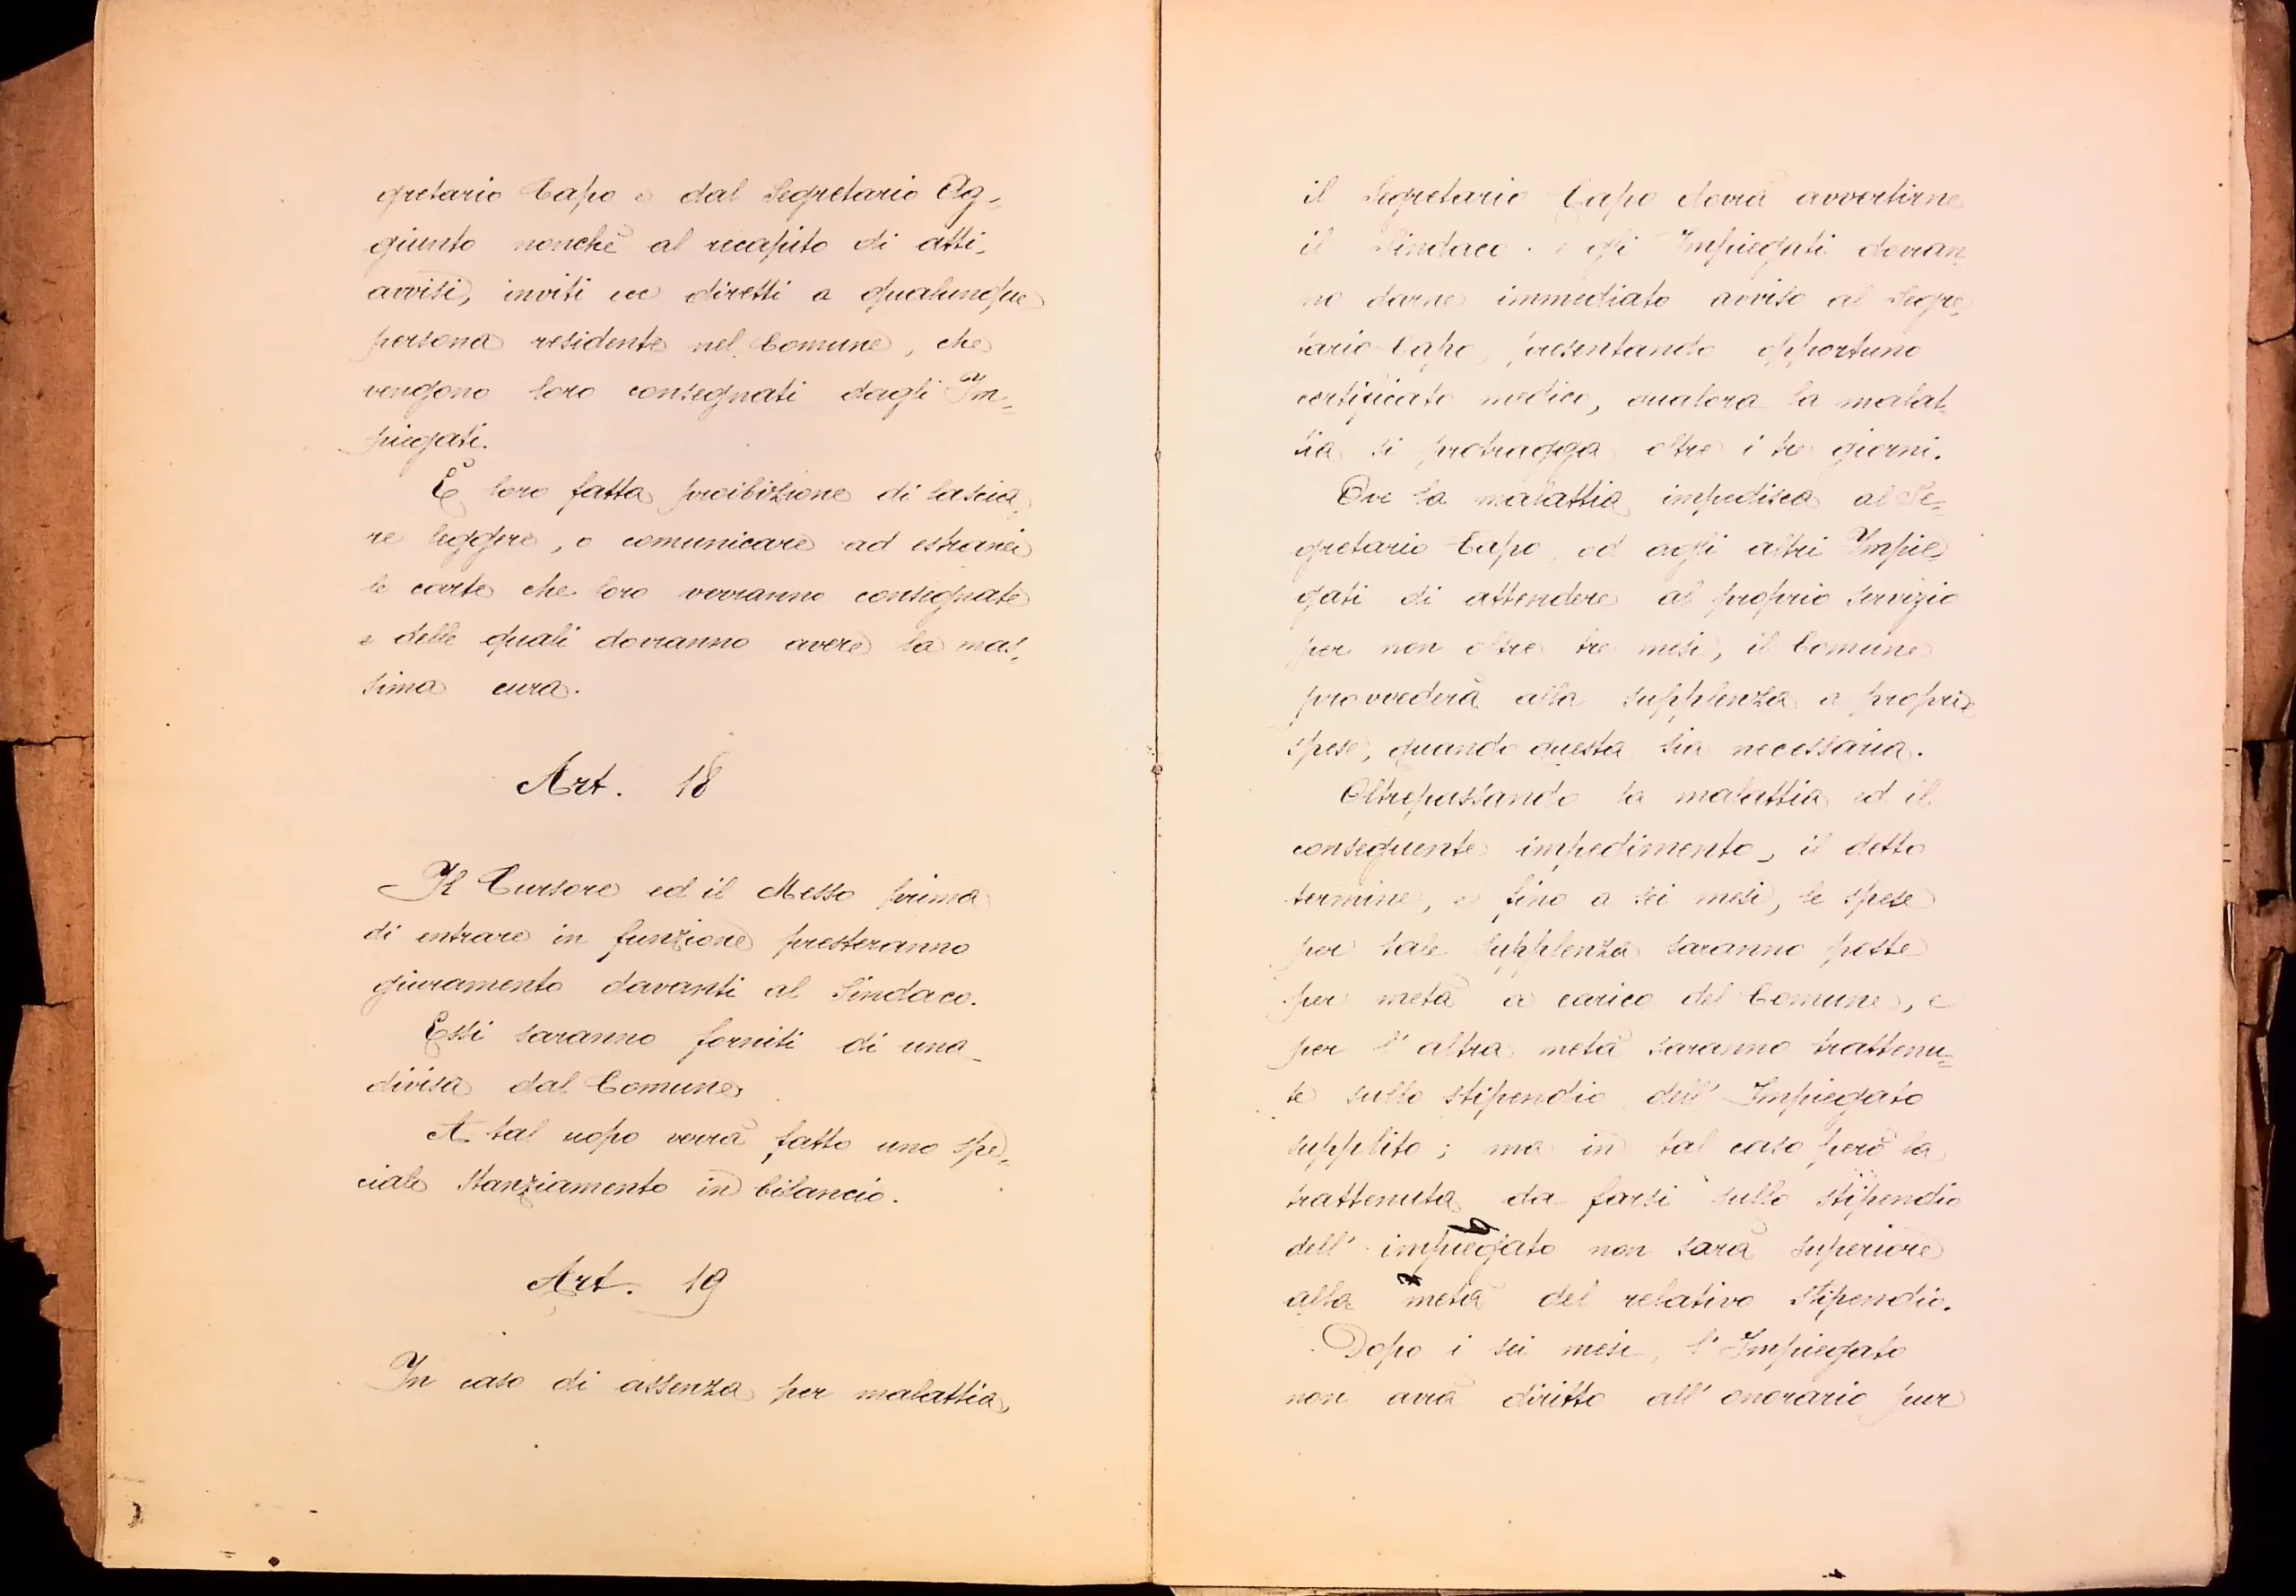 gretario Capo e dal Segretario Ag-
giunto nonchè al recapito di atti,
avvisi, inviti ecc diretti a qualunque
persona residente nel Comune, che
vengono loro consegnati dagli Im-
piegati.
È loro fatta proibizione di lascia-
re leggere, o comunicare ad estranei
le carte che loro verranno consegnate
e delle quali dovranno avere la mas-
sima cura.
Art. 18
Il Cursore ed il Messo prima
di entrare in funzione presteranno
giuramento davanti al Sindaco.
Essi saranno forniti di una
divisa dal Comune.
A tal uopo verrà fatto uno spe-
ciale stanziamento in bilancio.
Art. 19
In caso di assenza per malattia,
il Segretario Capo dovrà avvertirne
il Sindaco e gli Impiegati dovran
no darne immediato avviso al Segre-
tario Capo, presentando opportuno
certificato medico, qualora la malat-
tia si protragga oltre i tre giorni.
Ove la malattia impedisca al Se-
gretario Capo, od agli altri Impie-
gati di attendere al proprio servizio
per non oltre tre mesi, il Comune
provvederà alla supplenza a proprie
spese, quando questa sia necessaria.
Oltrepassando la malattia ed il
conseguente impedimento, il detto
termine, e fino a sei mesi, le spese
per tale supplenza saranno poste
per metà a carico del Comune, e
per l'altra metà saranno trattenu-
te sullo stipendio dell'Impiegato
supplito; ma in tal caso però la
trattenuta da farsi sullo stipendio
dell'impiegato non sarà superiore
alla metà del relativo stipendio.
Dopo i sei mesi, l'Impiegato
non avrà diritto all'onorario pur